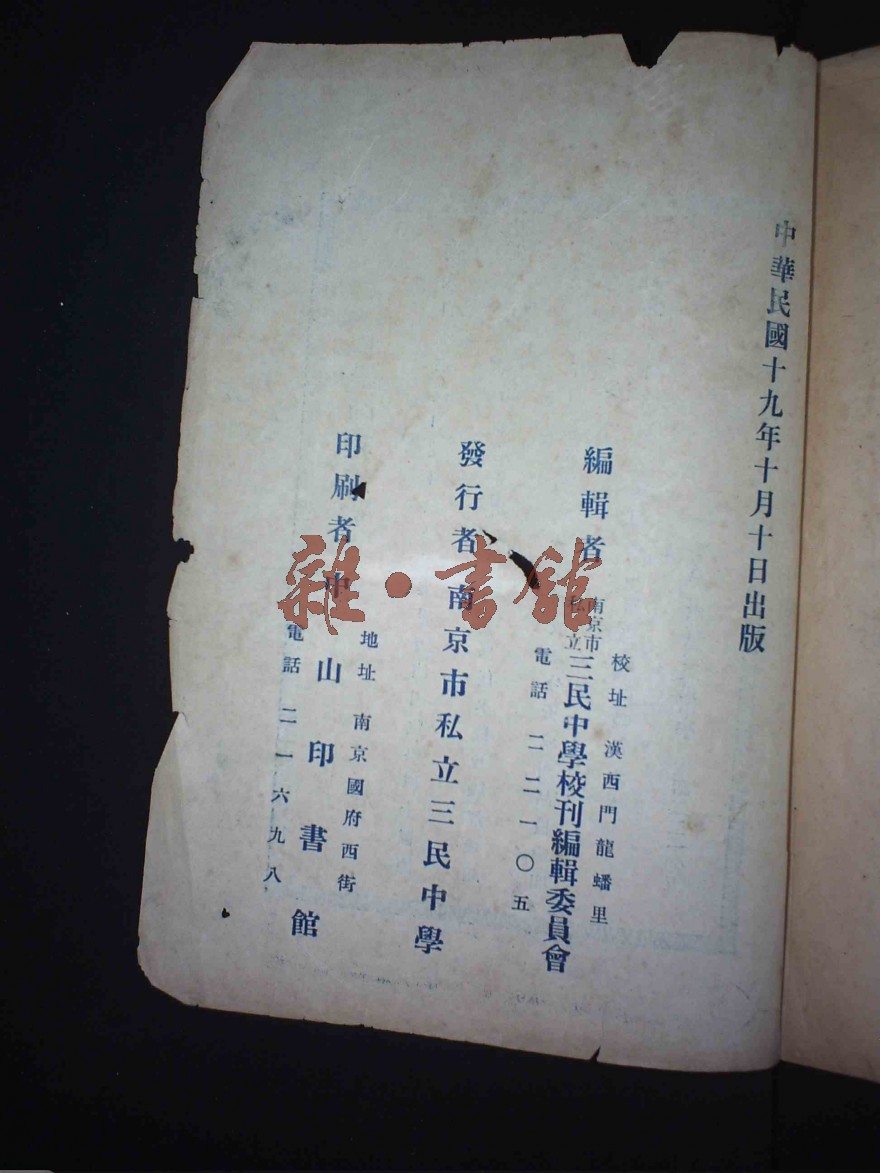 中華民國十九年十月十日出版
校址 漢西門龍蟠里
編輯者 南京市私立三民中學校刊編輯委員會
電話 二二一〇五
發行者 南京市私立三民中學
地址 南京國府西街
印刷者 中山印書館
電話 二一六九八
雜·書館